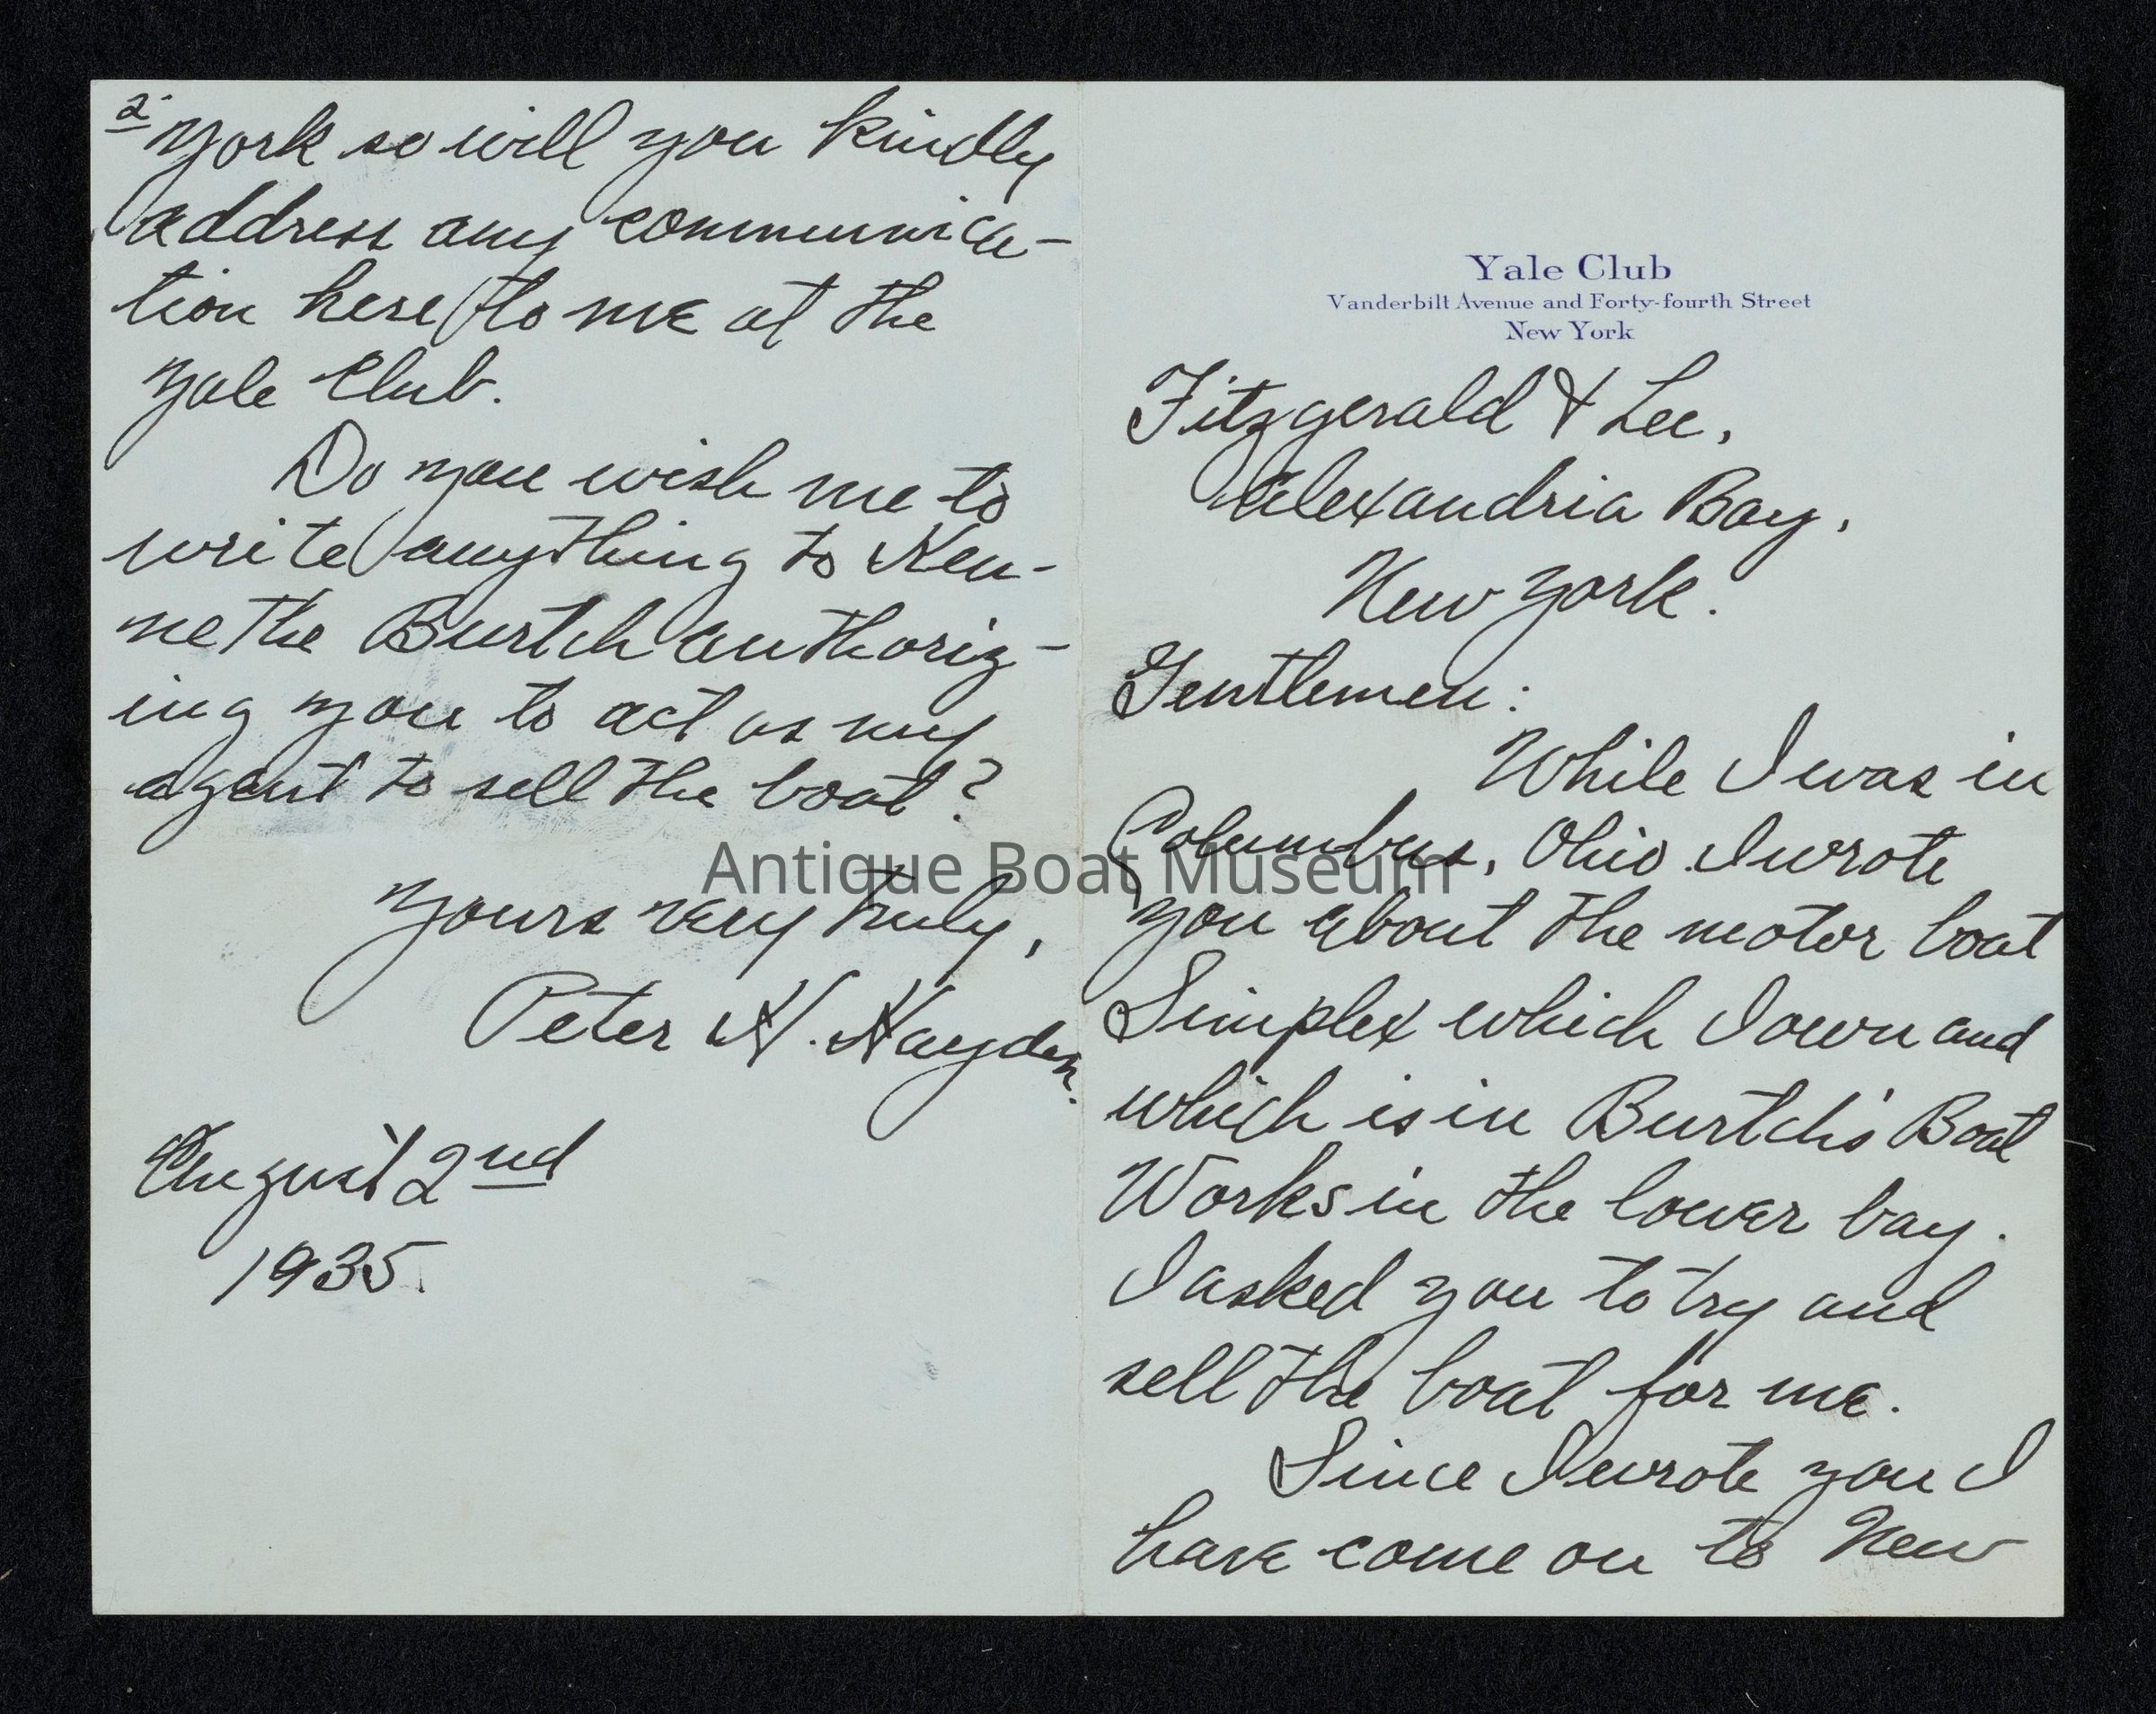 Yale Club
Vanderbilt Avenue and Forty-fourth Street
New York
Fitzgerald & Lee,
Alexandria Bay,
New York.
Gentlemen:
While I was in
Columbus, Ohio I wrote
you about the motor boat
Simplex which I own and
which is in Burtch's Boat
Works in the lower bay.
I asked you to try and
sell the boat for me.
Since I wrote you I
have come on to New
2.
York so will you kindly
address any communica-
tion here to me at the
Yale Club.
Do you wish me to
write anything to Ken-
neth Burtch authoriz-
ing you to act as my
agent to sell the boat?
Yours very truly,
Peter H. Hayden.
August 2nd
1935.
Antique Boat Museum